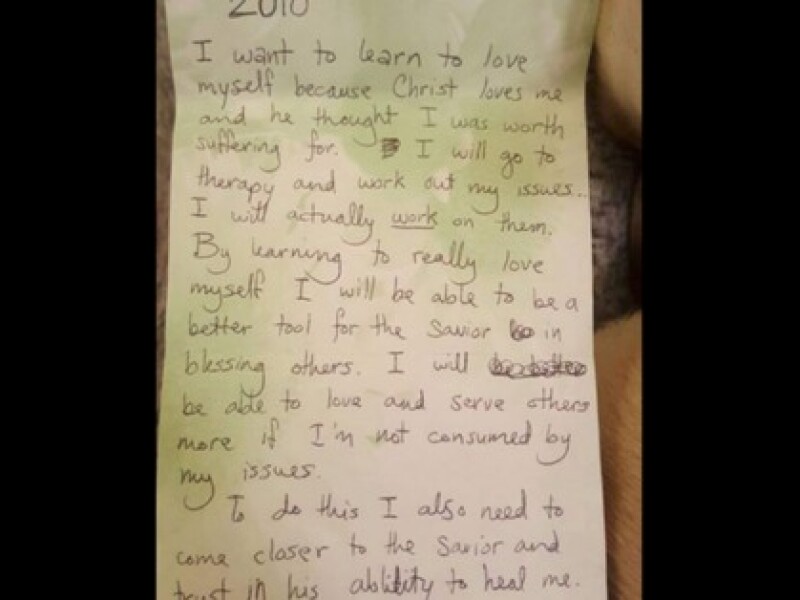 2010
I want to learn to love
myself because Christ loves me
and he thought I was worth
suffering for. I will go to
therapy and work out my issues...
I will actually work on them.
By learning to really love
myself I will be able to be a
better tool for the Savior in
blessing others. I will
be able to love and serve others
more if I'm not consumed by
my issues.
To do this I also need to
come closer to the Savior and
trust in his ablility to heal me.